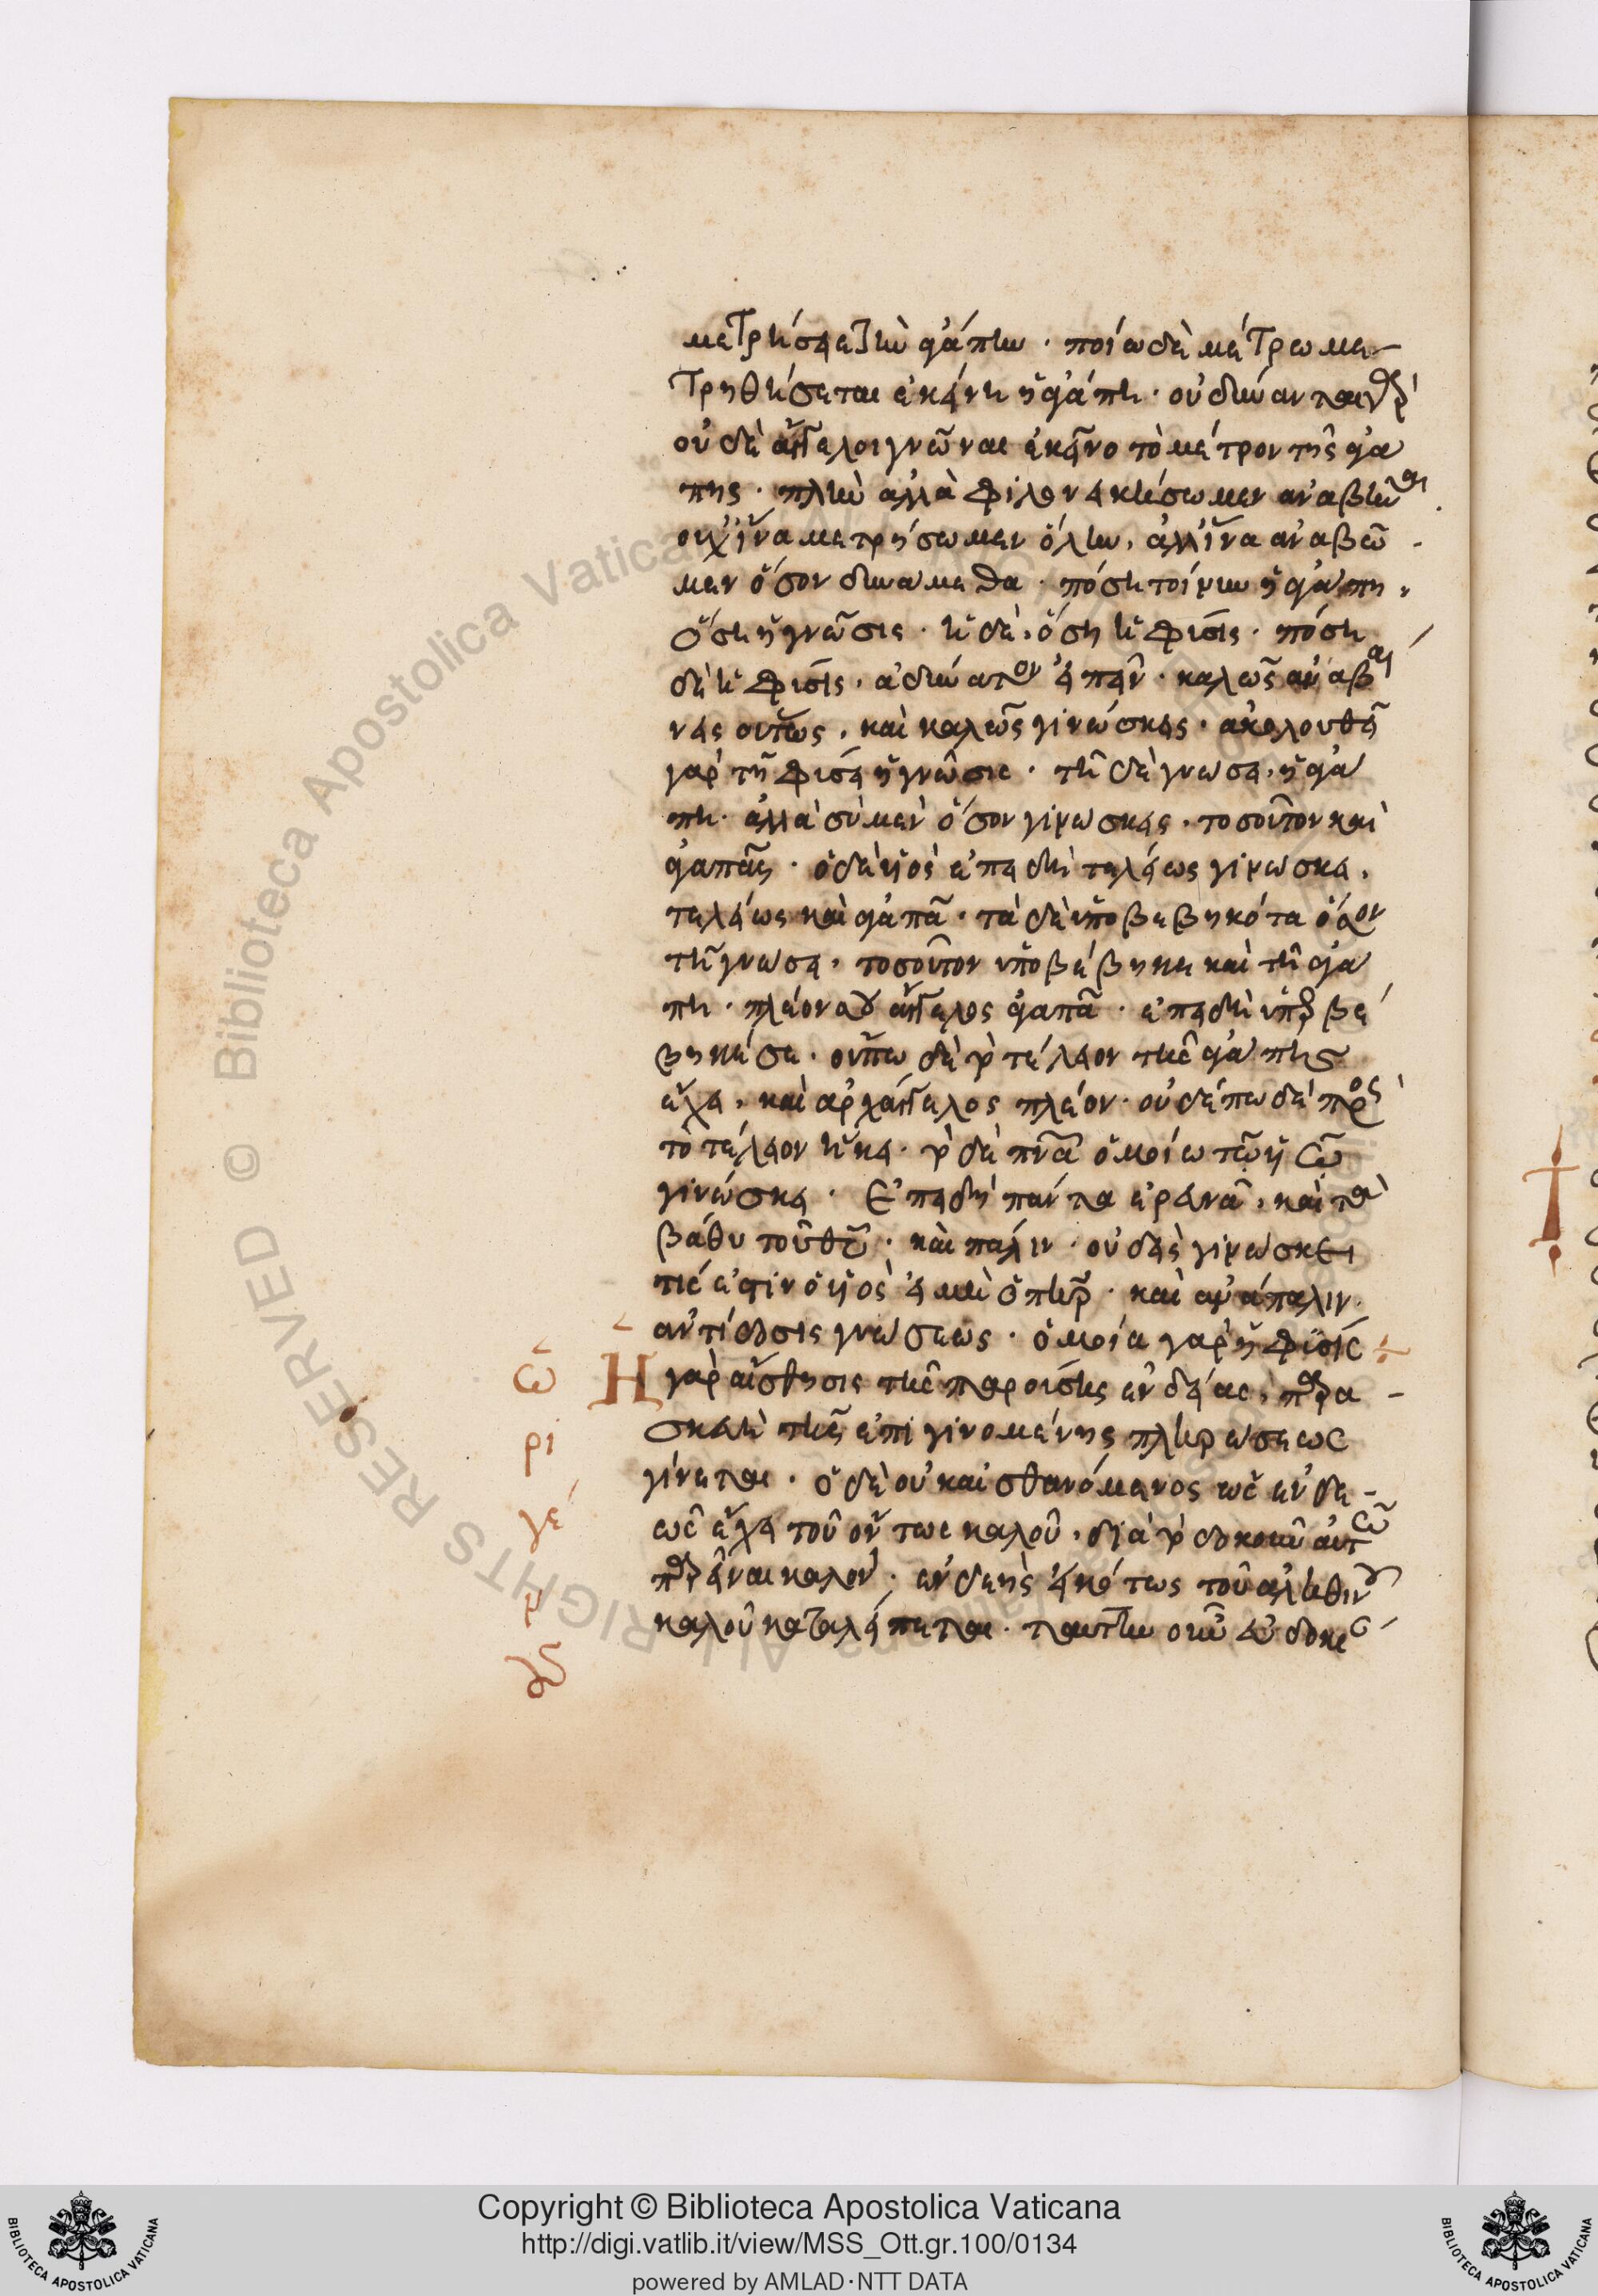 μετρήσει τὴν ἀγάπην · ποίω δὲ μέτρω με
τρηθήσεται ἐκείνη ἡ ἀγάπη · οὐ δύνανται
οὐδὲ ἄγγελοι γνῶναι ἐκεῖνο τὸ μέτρον τῆς ἀγά
πης · πλὴν ἀλλὰ φιλονεικήσωμεν ἀναβῆναι
οὐχ ἵνα μετρήσωμεν ὅλην, ἀλλ' ἵνα ἀναβῶ
μεν ὅσον δυνάμεθα · πόση τοίνυν ἡ ἀγάπη ·
ὅση ἡ γνῶσις · ἡ δὲ, ὅση ἡ φύσις · πόση
δὲ ἡ φύσις · ἀδύνατον εἰπεῖν · καλῶς ἀναβαί
νεις οὕτως, καὶ καλῶς γινώσκεις · ἀκολουθεῖ
γὰρ τῇ φύσει ἡ γνῶσις · τῇ δὲ γνώσει, ἡ ἀγά
πη · ἀλλὰ σὺ μὲν ὅσον γινώσκεις, τοσοῦτον καὶ
ἀγαπᾷς · ὁ δὲ υἱὸς ἐπειδὴ τελείως γινώσκει,
τελείως καὶ ἀγαπᾷ · τὰ δὲ ὑποβεβηκότα ὅσον
τῇ γνώσει, τοσοῦτον ὑποβέβηκε καὶ τῇ ἀγά
πη · πλέον σου ἄγγελος ἀγαπᾷ · ἐπειδὴ ὑπερβέ
βηκέ σε · οὔπω δὲ τὸ τέλειον τῆς ἀγάπης
εἶχε, καὶ ἀρχάγγελος πλέον · οὐδέπω δὲ πρὸς
τὸ τέλειον ἥκει · τὸ δὲ πνα ὁμοίω τῷ υἱῷ
γινώσκει · Ἐπειδὴ πάντα ἐρευνᾷ, καὶ τὰ
βάθη τοῦ θυ · καὶ πάλιν · οὐδεὶς γινώσκει
τίς ἐστιν ὁ υἱὸς εἰ μὴ ὁ πηρ · καὶ ἀνάπαλιν ·
ἀντίδοσις γνώσεως · ὁμοία γὰρ ἡ φύσις
Ἡ γὰρ αἴσθησις τῆς παρούσης ἐνδείας, παρα
σκευὴ τῆς ἐπιγινομένης πληρώσεως
γίνεται · ὁ δὲ οὐκ αἰσθανόμενος ὡς ἐνδε
ῶς εἶχε τοῦ ὄντως καλοῦ, διὰ τὸ δοκοῦν αὐτῷ
παρεῖναι καλὸν · ἐνδεὴς εἰκότως τοῦ ἀληθινοῦ
καλοῦ καταλείπεται · ταύτην οὖν εὐδοκε
ὠ
ρι
γέ
ν
ους
Copyright © Biblioteca Apostolica Vaticana
http://digi.vatlib.it/view/MSS_Ott.gr.100/0134
powered by AMLAD·NTT DATA
BIBLIOTECA APOSTOLICA VATICANA
BIBLIOTECA APOSTOLICA VATICANA
© Biblioteca Apostolica Vaticana
ALL RIGHTS RESERVED